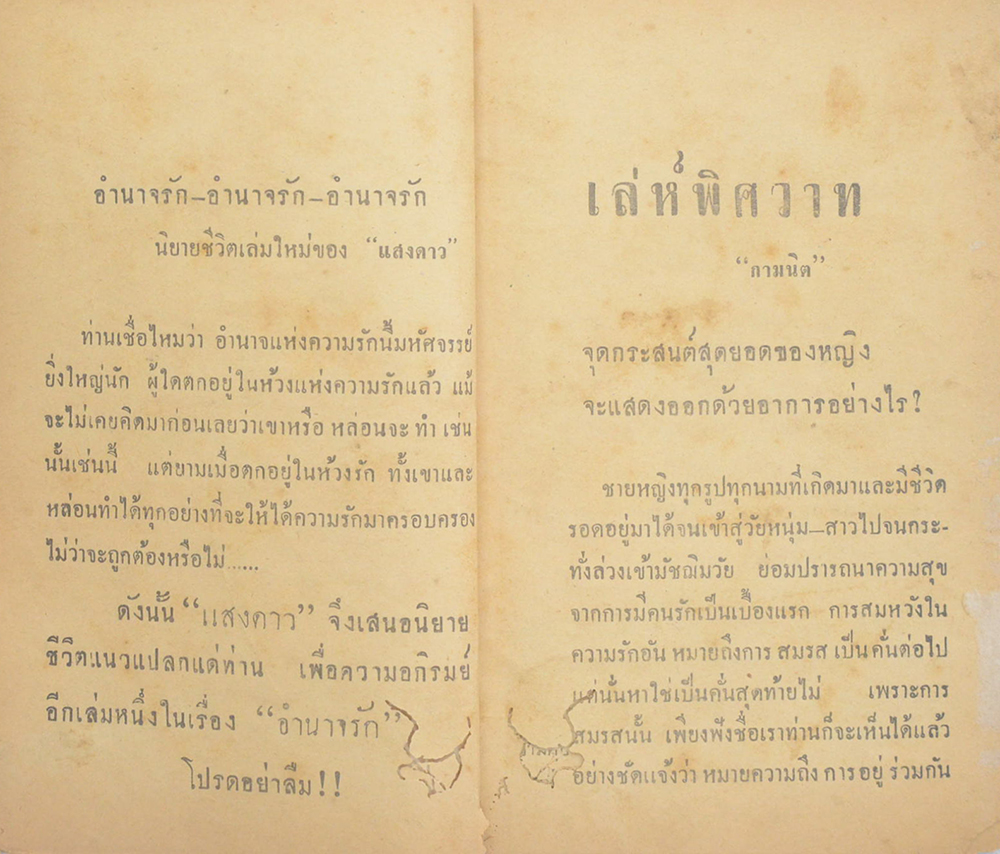 อำนาจรัก–อำนาจรัก–อำนาจรัก
นิยายชีวิตเล่มใหม่ของ “แสงดาว”
ท่านเชื่อไหมว่า อำนาจแห่งความรักนี้มหัศจรรย์
ยิ่งใหญ่นัก ผู้ใดตกอยู่ในห้วงแห่งความรักแล้ว แม้
จะไม่เคยคิดมาก่อนเลยว่าเขาหรือ หล่อนจะ ทำ เช่น
นั้นเช่นนี้ แต่ยามเมื่อตกอยู่ในห้วงรัก ทั้งเขาและ
หล่อนทำได้ทุกอย่างที่จะให้ได้ความรักมาครอบครอง
ไม่ว่าจะถูกต้องหรือไม่......
ดังนั้น “แสงดาว” จึงเสนอนิยาย
ชีวิตแนวแปลกแด่ท่าน เพื่อความอภิรมย์
อีกเล่มหนึ่งในเรื่อง “อำนาจรัก”
โปรดอย่าลืม!!
เล่ห์พิศวาท
“กามนิต”
จุดกระสนต์สุดยอดของหญิง
จะแสดงออกด้วยอาการอย่างไร?
ชายหญิงทุกรูปทุกนามที่เกิดมาและมีชีวิต
รอดอยู่มาได้จนเข้าสู่วัยหนุ่ม–สาวไปจนกระ-
ทั่งล่วงเข้ามัชฌิมวัย ย่อมปรารถนาความสุข
จากการมีคนรักเป็นเบื้องแรก การสมหวังใน
ความรักอัน หมายถึงการ สมรส เป็น คั่นต่อไป
แต่นั่นหาใช่เป็นคั่นสุดท้ายไม่ เพราะการ
สมรสนั้น เพียงฟังชื่อเราท่านก็จะเห็นได้แล้ว
อย่างชัดแจ้งว่า หมายความถึง การ อยู่ ร่วมกัน